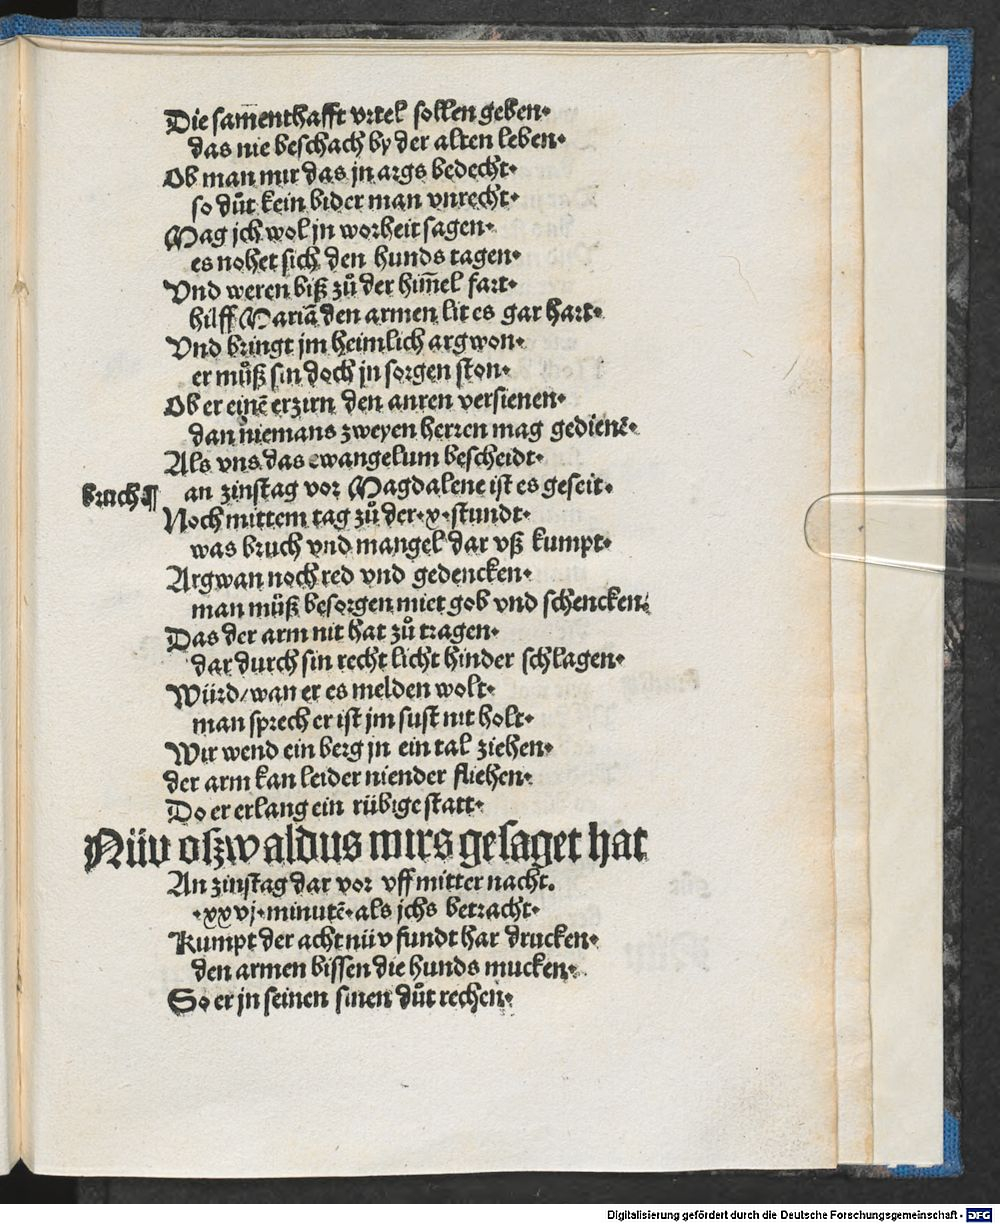 Die sam̄enthafft vrtel sollen geben·
das nie beschach by der alten leben·
Ob man mir das jn args bedecht·
so důt kein bider man vnrecht·
Mag jch wol jn worheit sagen·
es nohet sich den hunds tagen·
Vnd weren biß zů der him̄el fart·
hilff Mariā den armen lit es gar hart·
Vnd bringt jm heimlich argwon·
er můß sin doch jn sorgen ston·
Ob er einē erzirn den anren versienen·
dan niemans zweyen herren mag gedienē·
Als vns das ewangelum bescheidt·
bruch¶ an zinstag vor Magdalene ist es geseit·
Noch mittem tag zů der·v·stundt·
was bruch vnd mangel dar vß kumpt·
Argwan noch red vnd gedencken·
man müß besorgen miet gob vnd schencken·
Das der arm nit hat zů tragen·
dar durch sin recht licht hinder schlagen·
Würd/wan er es melden wolt·
man sprech er ist jm sust nit holt·
Wir wend ein berg jn ein tal ziehen·
der arm kan leider niender fliehen·
Do er erlang ein rübige statt·
Nüv oszwaldus mirs gesaget hat
An zinstag dar vor vff mitter nacht.
·xxvj·minutē·als jchs betracht·
Kumpt der acht nüv fundt har drucken·
den armen bissen die hunds mucken·
So er jn seinen sinen důt rechen·
Digitalisierung gefördert durch die Deutsche Forschungsgemeinschaft - DFG